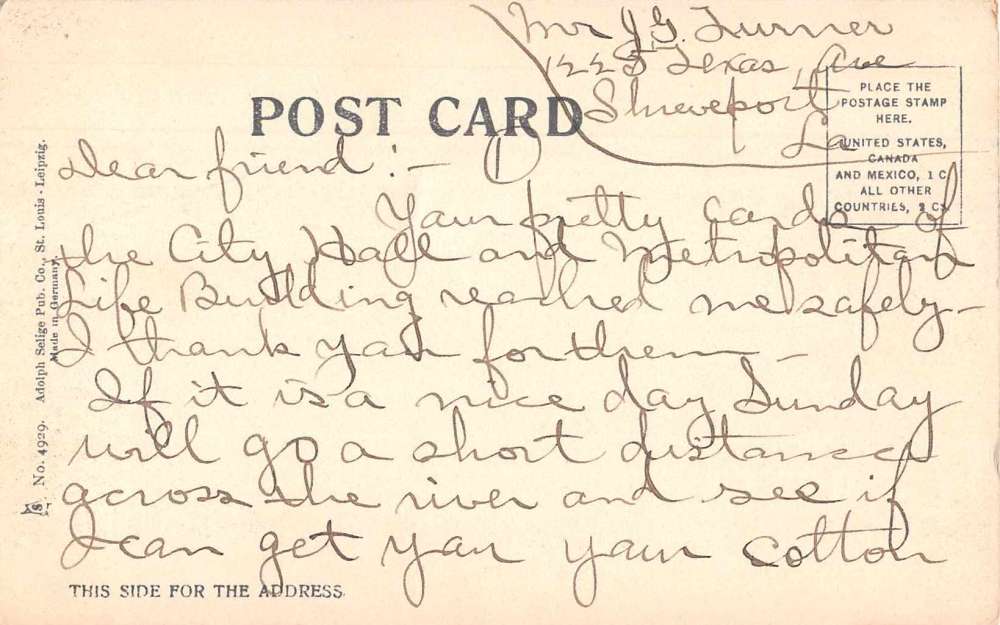 Mr J. G. Turner
1225 Texas, Ave
Shreveport
La
POST CARD
PLACE THE
POSTAGE STAMP
HERE.
UNITED STATES,
CANADA
AND MEXICO, 1 C
ALL OTHER
COUNTRIES, 2 CS
Dear friend :- 1
Your pretty cards of
the City Hall and Metropolitan
Life Building reached me safely-
I thank you for them -
If it is a nice day Sunday
will go a short distance
across the river and see if
I can get you your cotton
THIS SIDE FOR THE ADDRESS.
No. 4929. Adolph Selige Pub. Co., St. Louis - Leipzig.
Made in Germany.